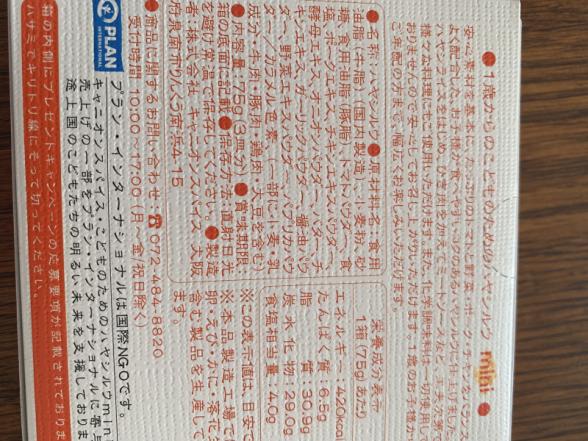 ●1歳からのこどものためのハヤシルウmini●
安心素材を基本に、たっぷりのトマトと野菜、ポークとチキンをバランス
よく配合した、お子様が食べやすいコクのあるハヤシルウに仕上げました。
ハヤシライスをはじめ、ひき肉を加えてミートソースなど、工夫次第で
様々な料理にもご使用いただけます。また、化学調味料は一切使用し
おりませんので安心してお召し上がりいただけます。1歳のお子様か
ご年配の方まで、幅広くお楽しみいただけます。
●名称:ハヤシルウ●原材料名:食用
油脂(牛脂)(国内製造)、小麦粉、砂
糖、食用油脂(豚脂)、トマトパウダー、食
塩、ポークエキスパウダー、チキンエキスパウダー、
酵母エキス、オニオンパウダー、バター、チ
キンエキス、ガーリックパウダー、醤油パウ
ダー、野菜エキスパウダー、パプリカパウ
ダー/カラメル色素、(一部に小麦・乳
成分・牛肉・豚肉・鶏肉・大豆を含む)
●内容量:175g(3皿分)●賞味期限:
箱の底面に記載●保存方法:直射日光
を避け常温で保存してください。●製造
者:株式会社 キャニオンスパイス 大阪
府泉南市りんくう南浜4-15
栄養成分表示
1箱(175g)あたり
エネルギー:420kcal
たんぱく質:6.5g
脂質:30.9g
炭水化物:29.0g
食塩相当量:4.0g
※この表示値は、目安で
※本品製造工場では
卵・えび・かに・落花生
含む製品を生産して
ます。
●商品に関するお問い合わせ:☎072-484-8820
受付時間 10:00~17:00(月~金/祝日除く)
PLAN
INTERNATIONAL
プラン・インターナショナルは国際NGOです。
キャニオンスパイス・こどものためのハヤシルウmini
売上げの一部をプラン・インターナショナルに寄
途上国のこどもたちの明るい未来を支援しており
箱の内側にプレゼントキャンペーンの応募要項が記載されておりま
ハサミでキリトリ線にそって切ってください。